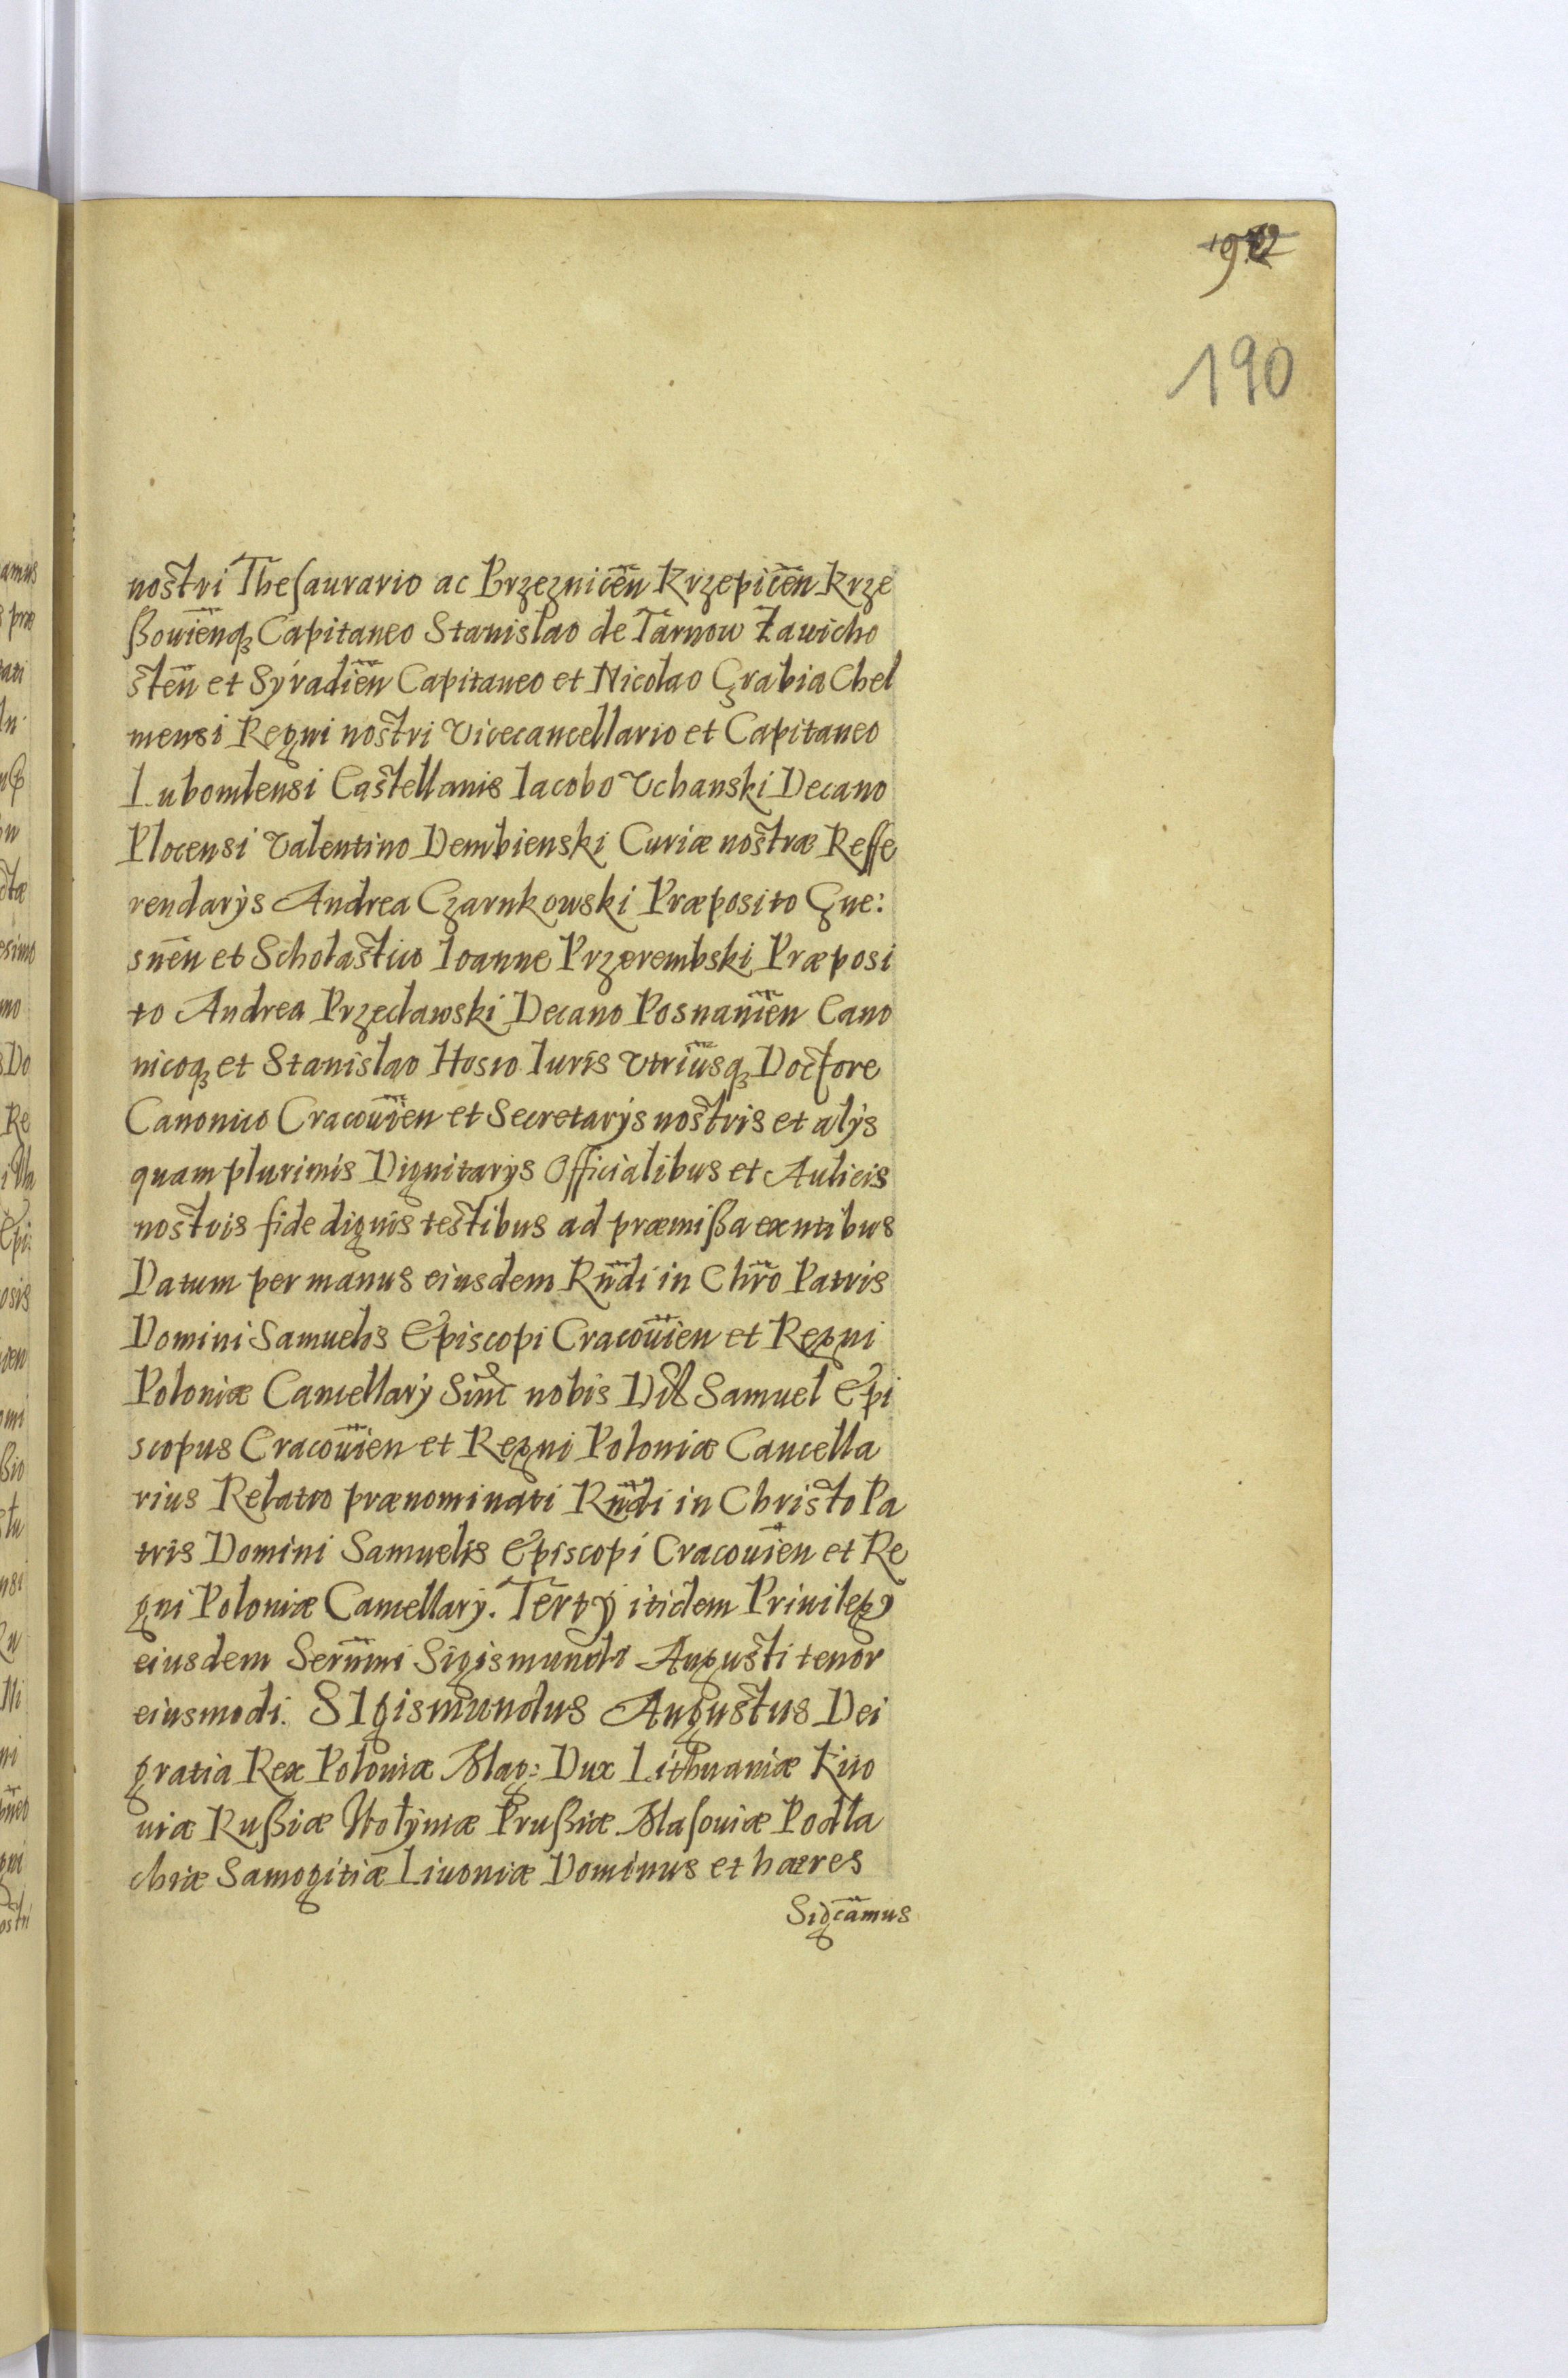 190
nostri Thesaurario ac Brzeznicen̄ Krzepicen̄ Krze
ßouien̄qꝫ Capitaneo Stanislao de Tarnow Zawicho
sten̄ et Sÿradien̄ Capitaneo et Nicolao Grabia Chel
mensi Regni nostri Vicecancellario et Capitaneo
Lubomlensi Castellanis Iacobo Vchanski Decano
Plocensi Valentino Dembienski Curiæ nostræ Reffe
rendarÿs Andrea Czarnkowski Præposito Gne:
snen̄ et Scholastico Ioanne Przerembski Præposi
to Andrea Przeclawski Decano Posnanien̄ Cano
nicoqꝫ et Stanislao Hosio Iuris Vtriusqꝫ Doctore
Canonico Cracouien̄ et Secretarÿs nostris et alÿs
quamplurimis Dignitarÿs Officialibus et Aulicis
nostris fide dignis testibus ad præmißa exn̄tibus
Datum per manus eiusdem Rn̄di in Chr̄o Patris
Domini Samuelis Episcopi Cracouien̄ et Regni
Poloniæ Cancellarÿ Sinc̄ nobis Dil Samuel Epi
scopus Cracouien̄ et Regni Poloniæ Cancella
rius Relatio prænominati Rn̄di in Christo Pa
tris Domini Samuelis Episcopi Cracouien̄ et Re
gni Poloniæ Cancellarÿ. Tertÿ itidem Priuilegÿ
eiusdem Sern̄mi Sigismundi Augusti tenor
eiusmodi. SIgismundus Augustus Dei
gratia Rex Poloniæ Mag: Dux Lithuaniæ Kiio
uiæ Rußiæ Wolÿniæ Prußiæ Masouiæ Podla
chiæ Samogitiæ Liuoniæ Dominus et hæres
Sigc̄amus